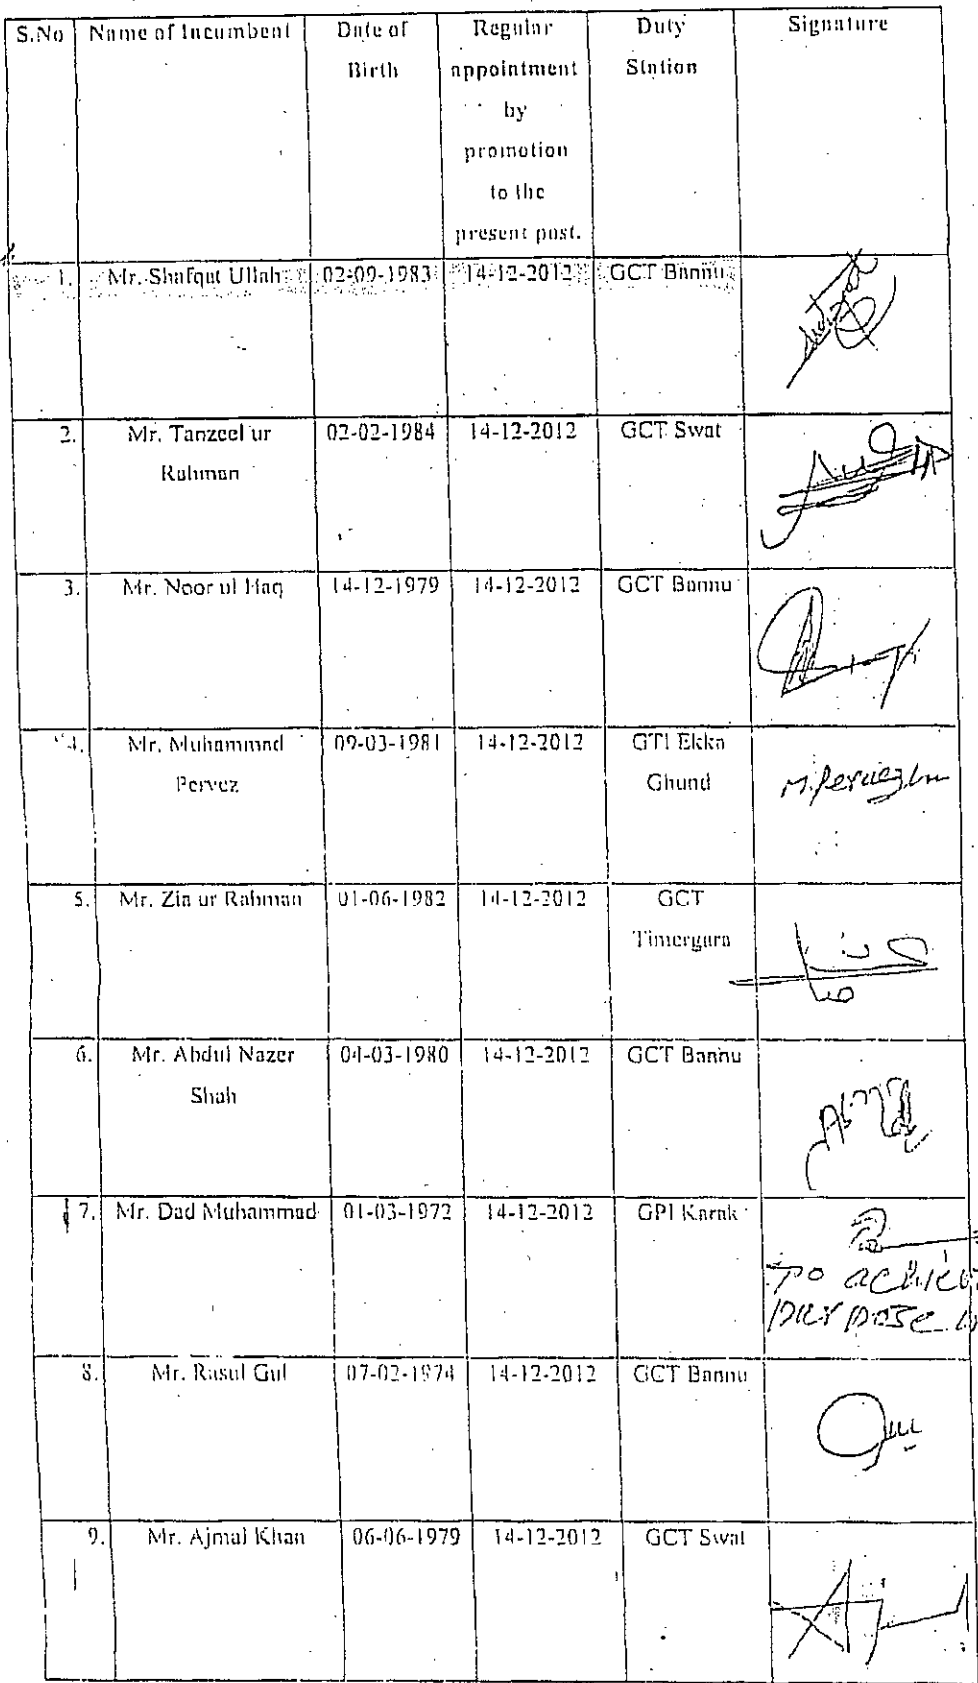 S.No Name of Incumbent Date of Birth Regular appointment by promotion to the present post. Duty Station Signature
1. Mr. Shafqat Ullah 02-09-1983 14-12-2012 GCT Bannu
2. Mr. Tanzeel ur Rahman 02-02-1984 14-12-2012 GCT Swat
3. Mr. Noor ul Haq 14-12-1979 14-12-2012 GCT Bannu
4. Mr. Muhammad Pervez 09-03-1981 14-12-2012 GTI Ekka Ghund
5. Mr. Zia ur Rahman 01-06-1982 14-12-2012 GCT Timergara
6. Mr. Abdul Nazer Shah 04-03-1980 14-12-2012 GCT Bannu
7. Mr. Dad Muhammad 01-03-1972 14-12-2012 GPI Karak
To
8. Mr. Rasul Gul 07-02-1974 14-12-2012 GCT Bannu
9. Mr. Ajmal Khan 06-06-1979 14-12-2012 GCT Swat